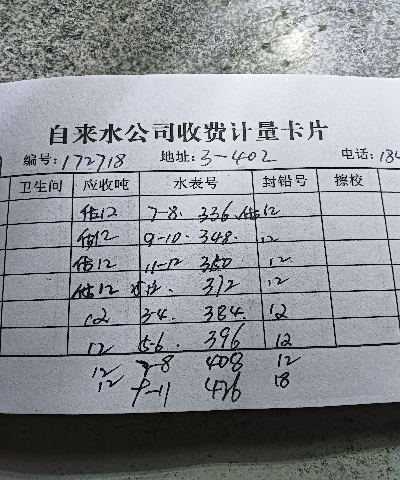 自来水公司收费计量卡片
编号:172718 地址:3-402 电话:134
卫生间 应收吨 水表号 封铅号 擦校
估12 7-8. 336 估12
估12 9-10. 348. 12
估12 11-12 360 12
估12 372 12
12 3-4. 384. 12
12 5-6. 396 12
12 7-8 408 12
12 9-11 426 18